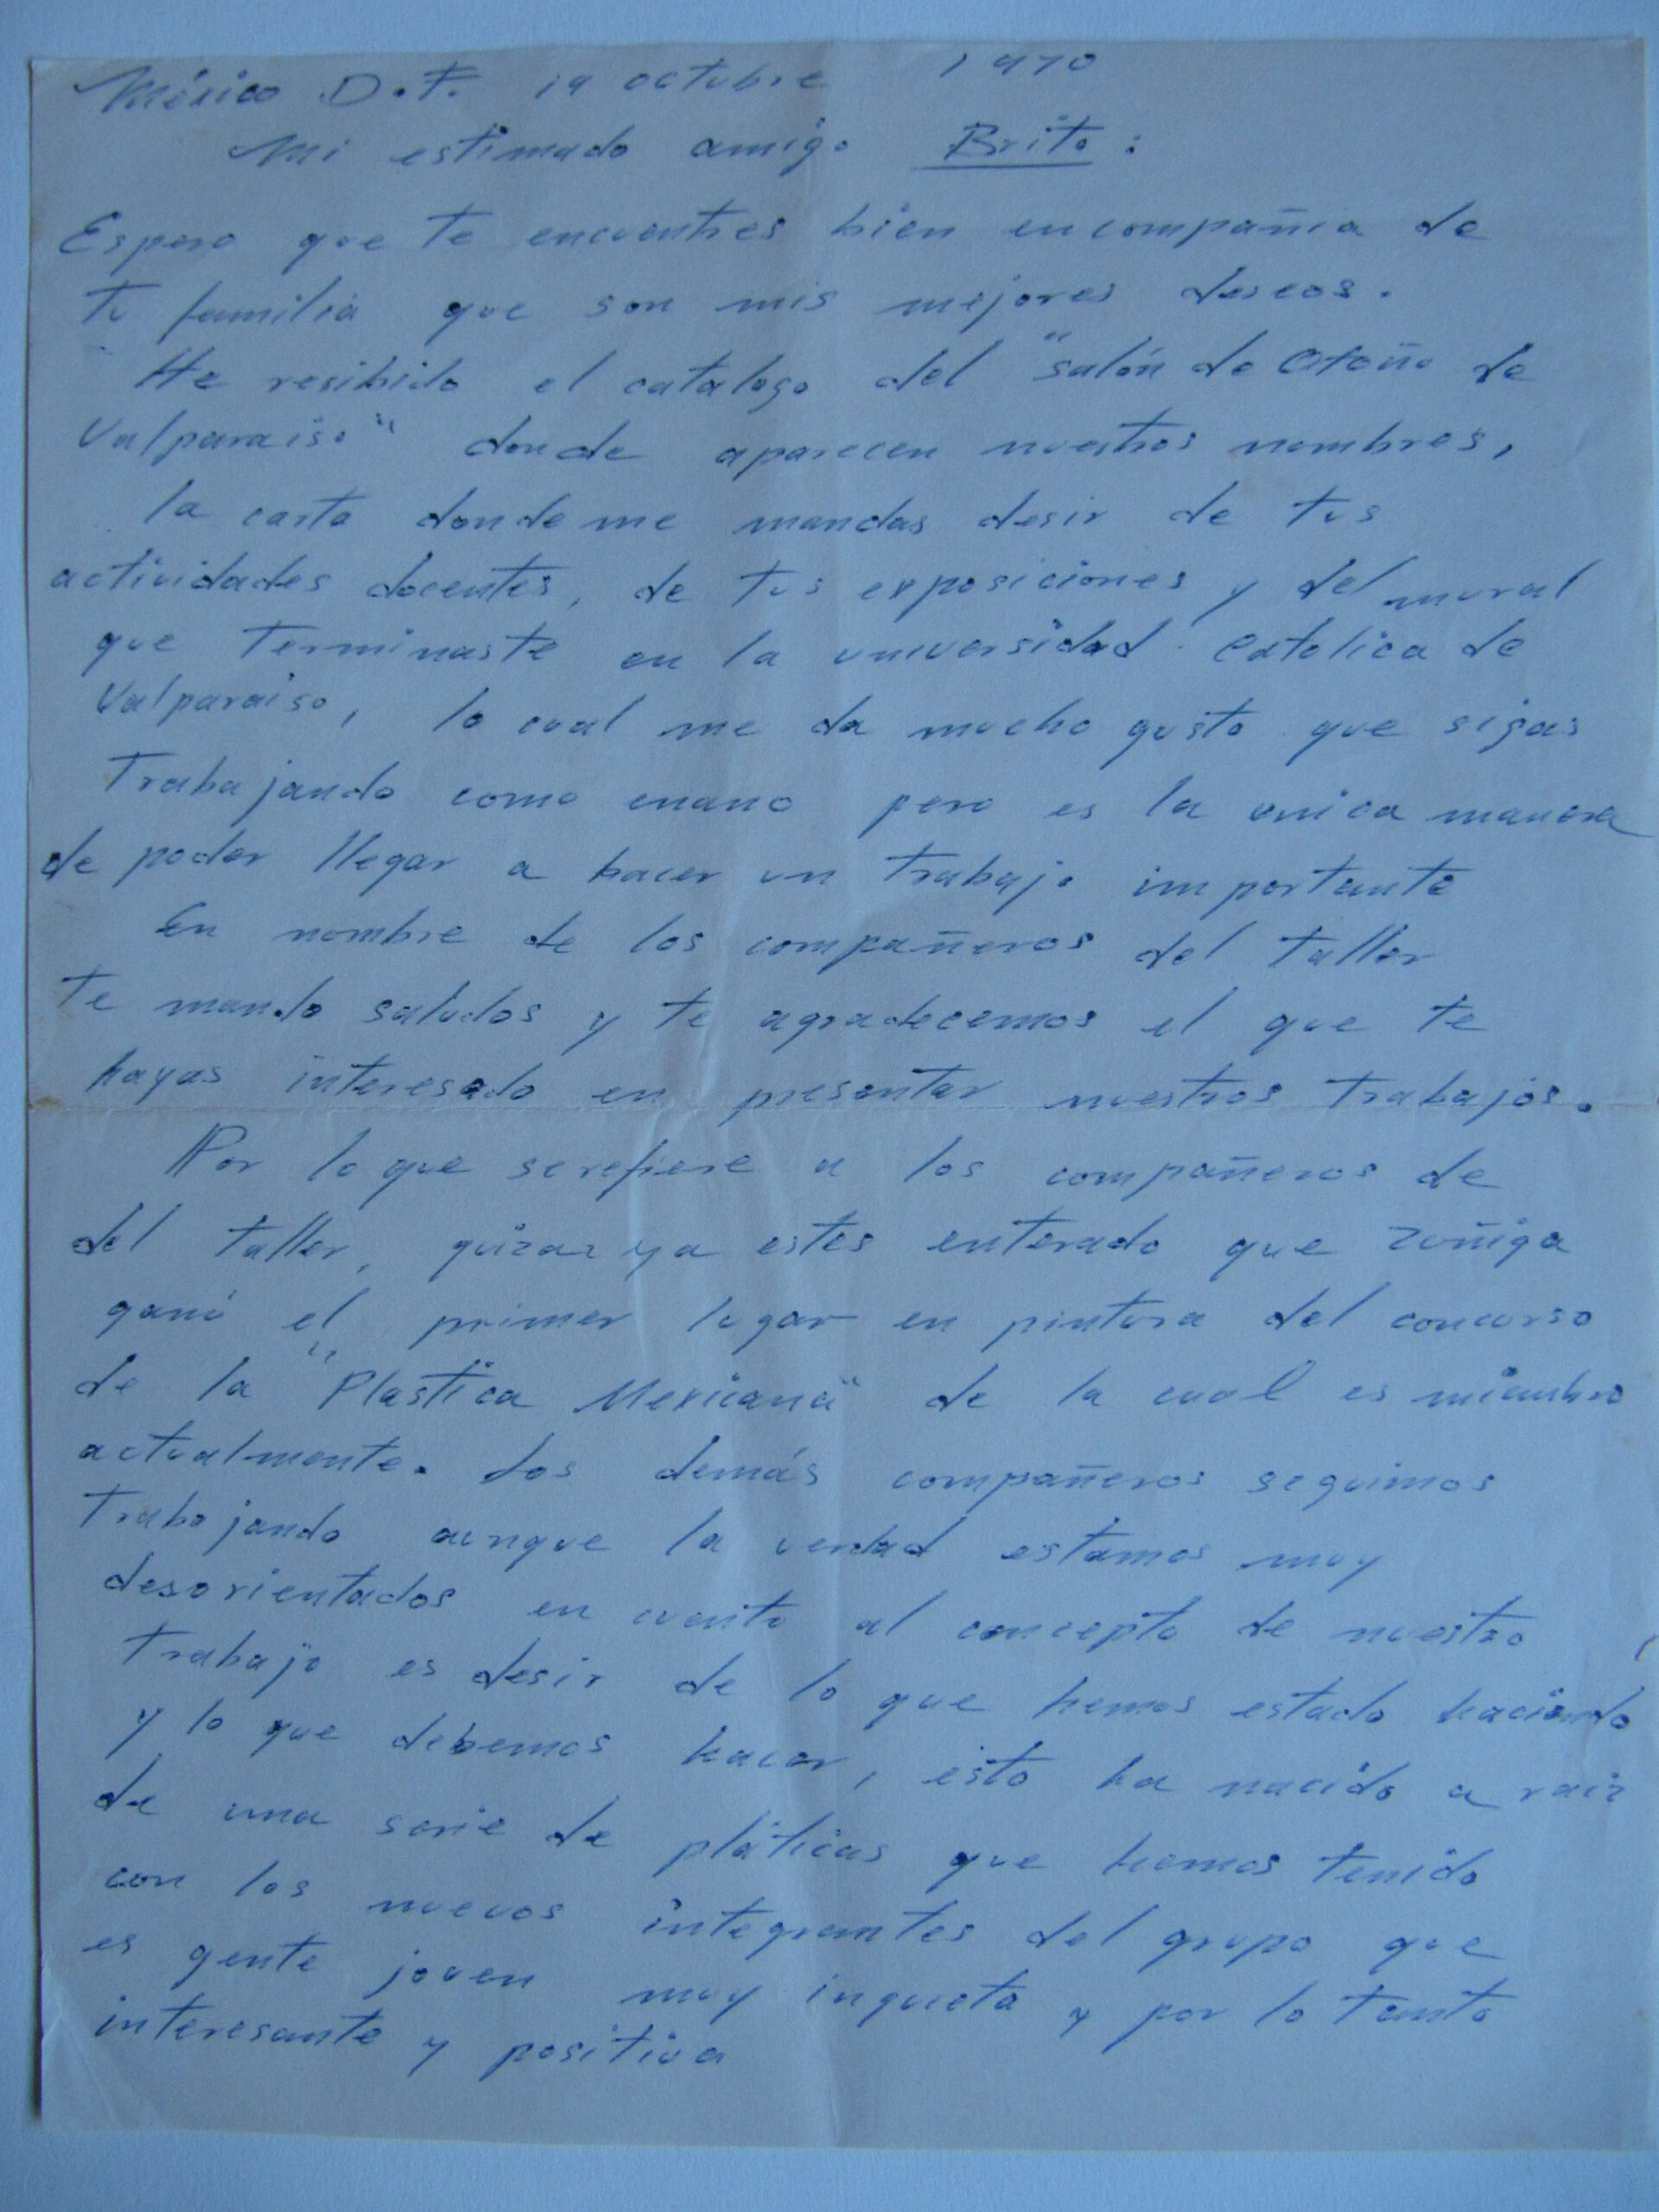 México D.F. 19 octubre 1970
Mi estimado amigo Brito:
Espero que te encuentres bien en compañia de
tu familia que son mis mejores deseos.
He resibido el catalogo del "salón de Otoño de
Valparaiso" donde aparecen nuestros nombres,
la carta donde me mandas desir de tus
actividades docentes, de tus exposiciones y del mural
que terminaste en la universidad catolica de
Valparaiso, lo cual me da mucho gusto que sigas
trabajando como enano pero es la unica manera
de poder llegar a hacer un trabajo importante
En nombre de los compañeros del taller
te mando saludos y te agradecemos el que te
hayas interesado en presentar nuestros trabajos.
Por lo que se refiere a los compañeros de
del taller, quizaz ya estes enterado que zuñiga
ganó el primer lugar en pintura del concurso
de la "Plastica Mexicana" de la cual es miembro
actualmente. Los demás compañeros seguimos
trabajando aunque la verdad estamos muy
desorientados en cuanto al concepto de nuestro
trabajo es desir de lo que hemos estado haciendo
y lo que debemos hacer, esto ha nacido a raiz
de una serie de pláticas que hemos tenido
con los nuevos integrantes del grupo que
es gente joven muy inquieta y por lo tanto
interesante y positiva